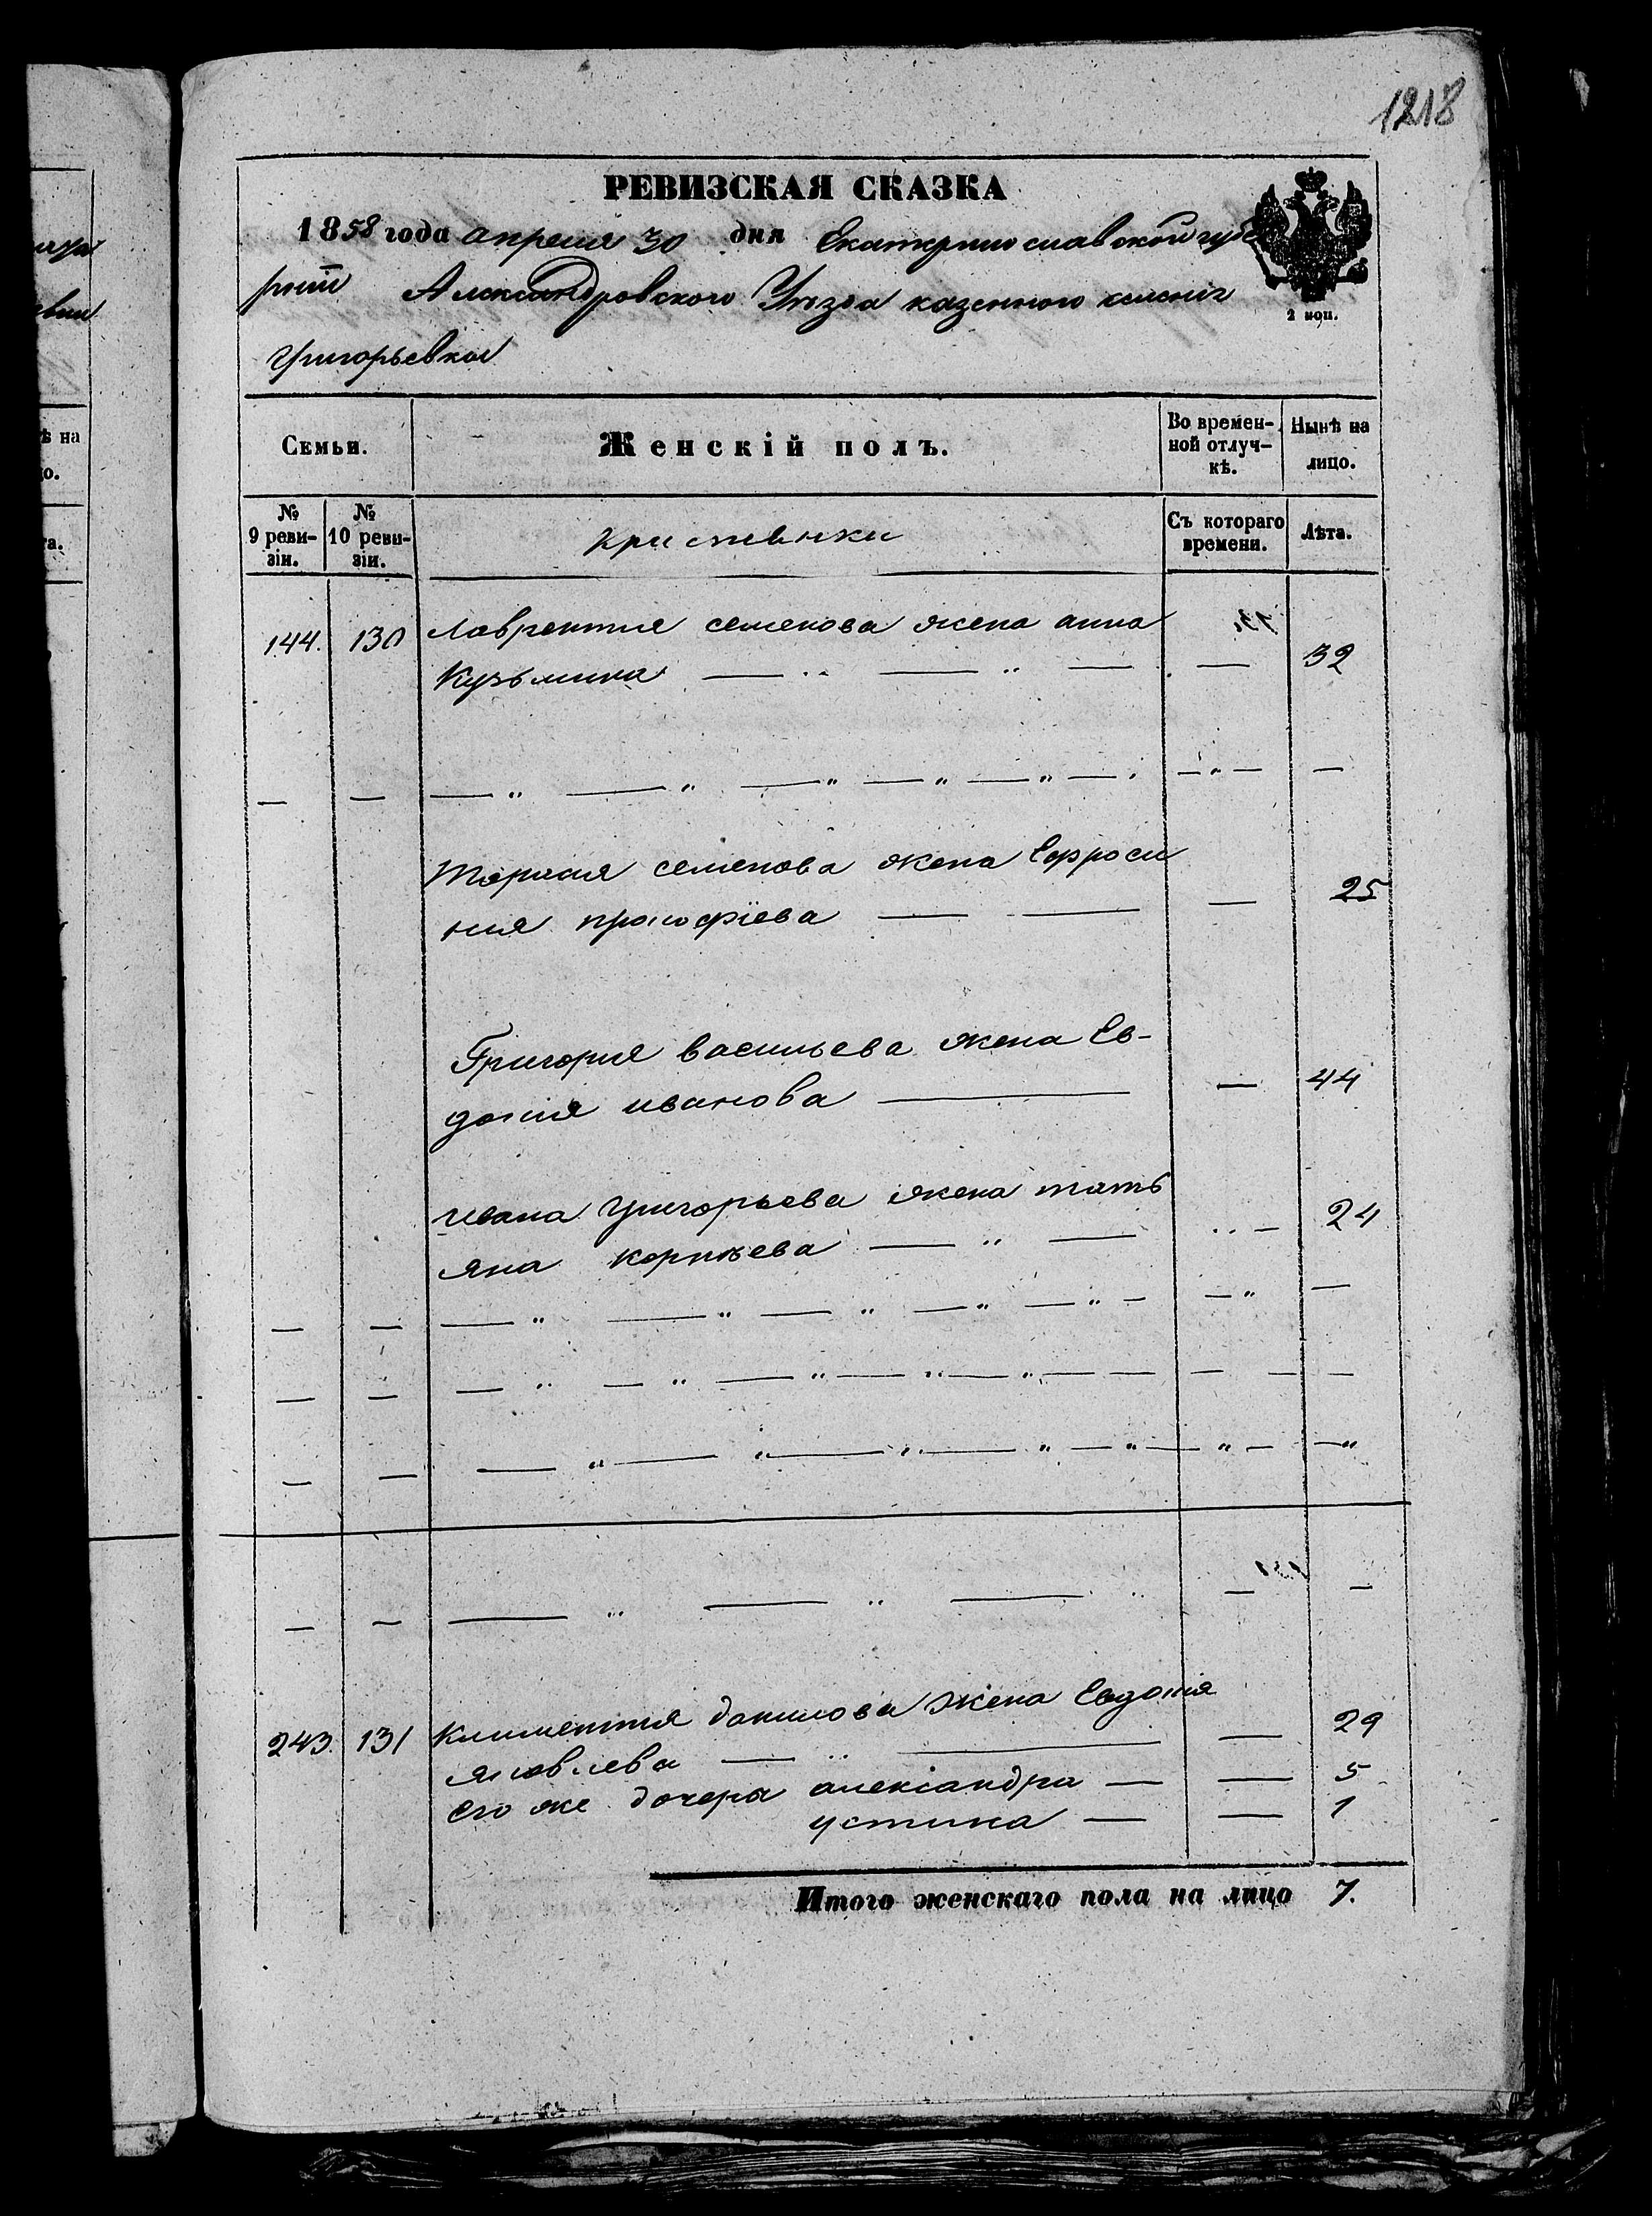 1218
РЕВИЗСКАЯ СКАЗКА
1858 года апреля 30 дня Екатеринославской губе
рніи Александровского Уѣзда казенного селения
2 коп.
Григорьевки
Семьи.
Женскій полъ.
Во времен-
ной отлуч-
кѣ.
Нынѣ на
лицо.
№
9 реви-
зіи.
№
10 реви-
зіи.
Съ котораго
времени.
Лѣта.
144. 130 Лаврентия семенова жена анна
Кузьмина — — — — 32
семенова жена Ефроси
ния прокофіева — — — 25
Григория васильева жена Ев-
докия иванова — — 44
ивана Григорьева жена тать
яна корнѣева — „ — — 24
243. 131 Климентия данилова жена Евдокия
яковлева — „ — — 29
Его же дочеря александра — — 5
устина — — 1
Итого женскаго пола на лицо 7.
ѣ на
о.
та.